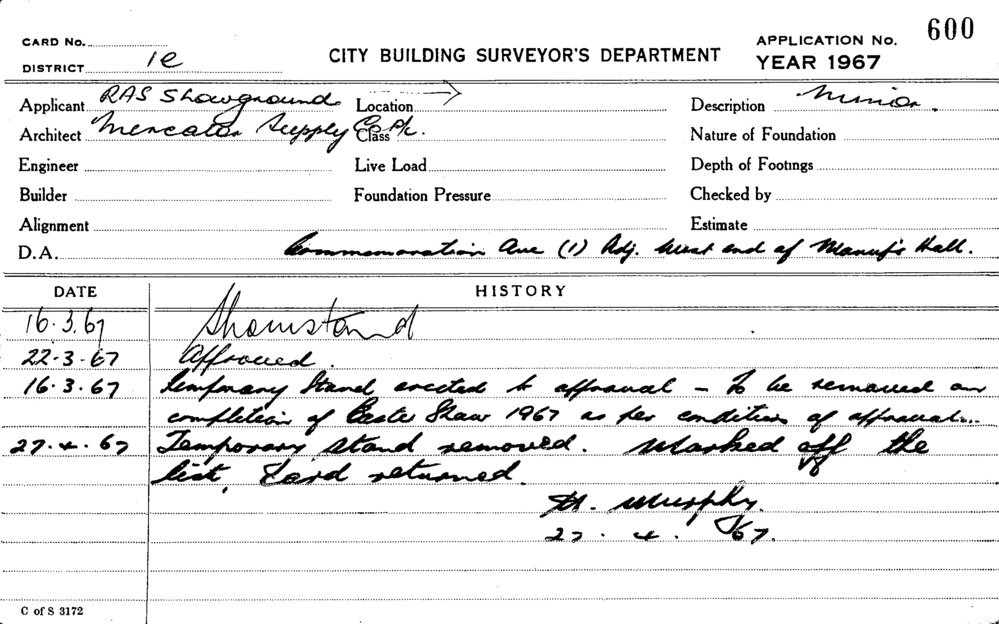 CARD No.
DISTRICT 1e
CITY BUILDING SURVEYOR'S DEPARTMENT
APPLICATION No. 600
YEAR 1967
Applicant RAS Showground Location Description Minor.
Architect Mercator Supply Co P/L. Class Nature of Foundation
Engineer Live Load Depth of Footings
Builder Foundation Pressure Checked by
Alignment Estimate
D.A. Commemoration Ave (1) Adj. West end of Manuf's Hall.
DATE HISTORY
16.3.67 Showstand
22-3-67 Approved.
16.3.67 Temporary Stand erected to approval – To be removed on
completion of Easter Show 1967 as per condition of approval...
27.4.67 Temporary stand removed. Marked off the
list, Card returned.
Murphy.
27.4.67.
C of S 3172